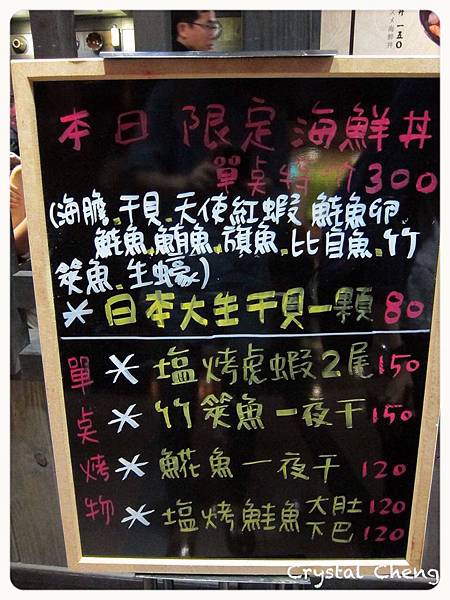 本日限定海鮮丼
單点特價300
(海膽.干貝.天使紅蝦.鮭魚卵.
鮭魚.鮪魚.旗魚.比目魚.竹
筴魚.生蠔)
* 日本大生干貝一顆 80
單点烤物
* 塩烤虎蝦2尾 150
* 竹筴魚一夜干 150
* 䱀魚一夜干 120
* 塩烤鮭魚 大肚 120
下巴 120
Crystal Cheng